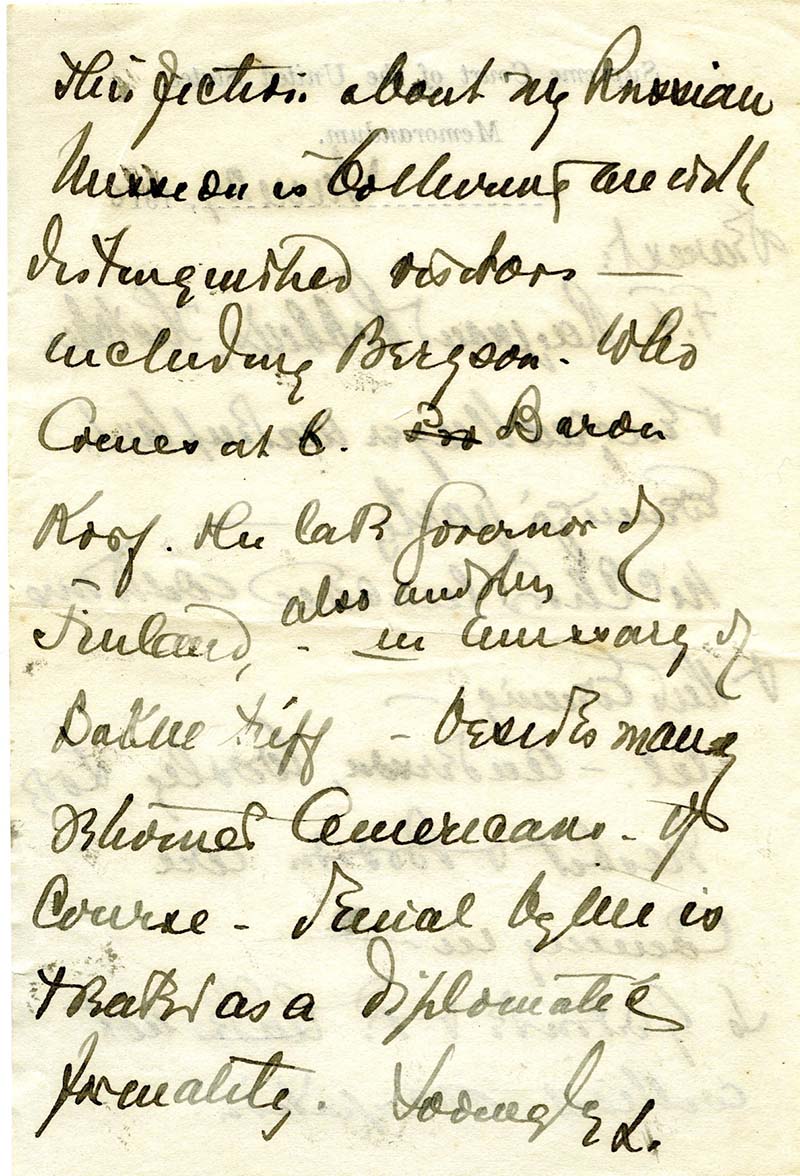 This fiction about my Russian
Mission is bothering me with
distinguished visitors —
including Bergson. Who
Comes at 6. Baron
Korf. the late Governor of
also another
Finland, - in Emissary of
- besides many
Americans - Of
Course - denial by me is
treated as a diplomatic
formality. Lovingly L.
Supreme Court of the United States
Memorandum.